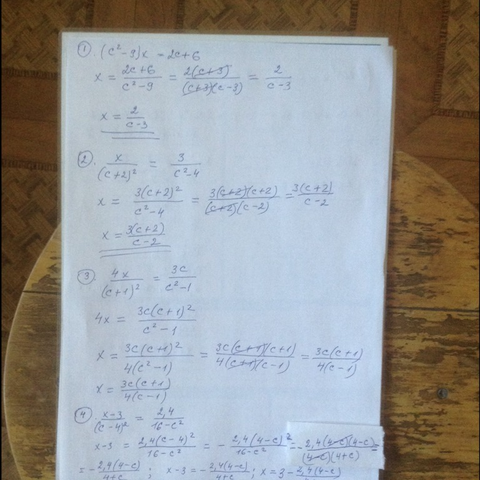 ① (c²-9)x = 2c+6
x = (2c+6)/(c²-9) = 2(c+3)/((c+3)(c-3)) = 2/(c-3)
x = 2/(c-3)
② x/(c+2)² = 3/(c²-4)
x = 3(c+2)²/(c²-4) = 3(c+2)(c+2)/((c+2)(c-2)) = 3(c+2)/(c-2)
x = 3(c+2)/(c-2)
③ 4x/(c+1)² = 3c/(c²-1)
4x = 3c(c+1)²/(c²-1)
x = 3c(c+1)²/(4(c²-1)) = 3c(c+1)(c+1)/(4(c+1)(c-1)) = 3c(c+1)/(4(c-1))
x = 3c(c+1)/(4(c-1))
④ (x-3)/(c-4)² = 2,4/(16-c²)
x-3 = 2,4(c-4)²/(16-c²) = - 2,4(4-c)²/(16-c²) = - 2,4(4-c)(4-c)/((4-c)(4+c)) =
= - 2,4(4-c)/(4+c) ; x-3 = - 2,4(4-c)/(4+c) ; x = 3 - 2,4(4-c)